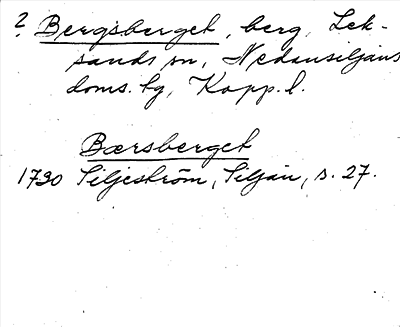 ? Bergsberget, berg, Lek-
sands sn, Nedansiljans
doms. hg, Kopp. l.
Bærsberget
1730 Siljeström, Siljan, s. 27.